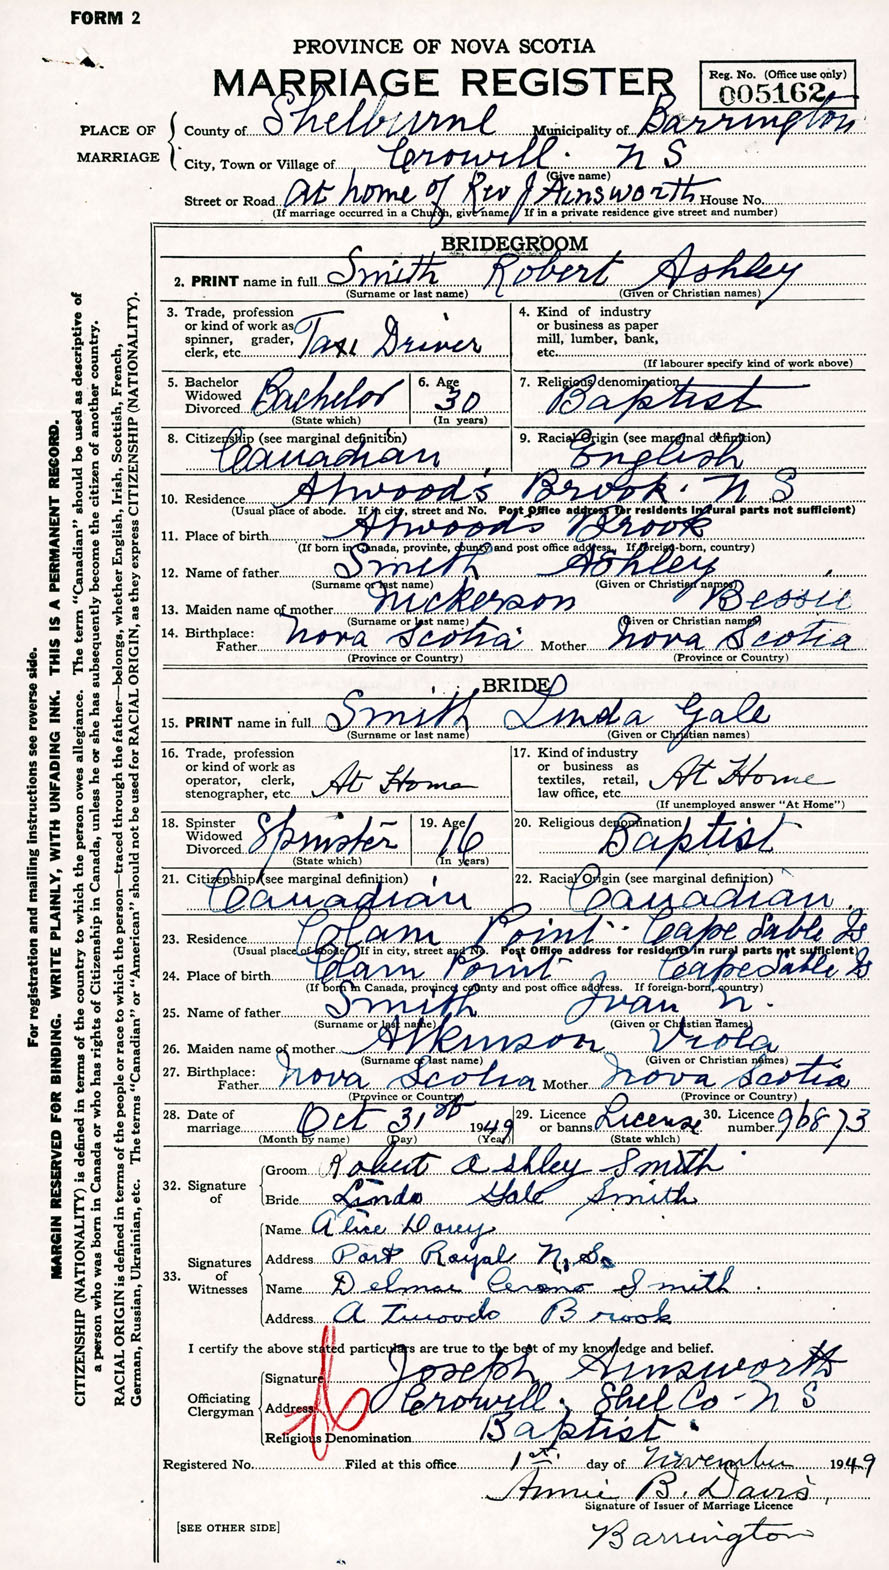 FORM 2
PROVINCE OF NOVA SCOTIA
MARRIAGE REGISTER
Reg. No. (Office use only)
005162
PLACE OF MARRIAGE
County of Shelburne Municipality of Barrington
City, Town or Village of Crowell. N S
(Give name)
Street or Road At home of Rev J Ainsworth House No.
(If marriage occurred in a Church, give name If in a private residence give street and number)
BRIDEGROOM
2. PRINT name in full Smith Robert Ashley
(Surname or last name) (Given or Christian names)
3. Trade, profession
or kind of work as
spinner, grader,
clerk, etc. Taxi Driver
4. Kind of industry
or business as paper
mill, lumber, bank,
etc.
(If labourer specify kind of work above)
5. Bachelor
Widowed
Divorced Bachelor
(State which)
6. Age 30
(In years)
7. Religious denomination Baptist
8. Citizenship (see marginal definition) Canadian
9. Racial Origin (see marginal definition) English
10. Residence Atwood's Brook. N S
(Usual place of abode. If in city, street and No. Post Office address for residents in rural parts not sufficient)
11. Place of birth Atwoods Brook
(If born in Canada, province, county and post office address. If foreign-born, country)
12. Name of father Smith Ashley
(Surname or last name) (Given or Christian names)
13. Maiden name of mother Nickerson Bessie
(Surname or last name) (Given or Christian names)
14. Birthplace:
Father Nova Scotia Mother Nova Scotia
(Province or Country) (Province or Country)
BRIDE
15. PRINT name in full Smith Linda Gale
(Surname or last name) (Given or Christian names)
16. Trade, profession
or kind of work as
operator, clerk,
stenographer, etc. At Home
17. Kind of industry
or business as
textiles, retail,
law office, etc. At Home
(If unemployed answer "At Home")
18. Spinster
Widowed
Divorced Spinster
(State which)
19. Age 16
(In years)
20. Religious denomination Baptist
21. Citizenship (see marginal definition) Canadian
22. Racial Origin (see marginal definition) Canadian
23. Residence Clam Point. Cape Sable Is
(Usual place of abode. If in city, street and No. Post Office address for residents in rural parts not sufficient)
24. Place of birth Clam Point Cape Sable Is
(If born in Canada, province, county and post office address. If foreign-born, country)
25. Name of father Smith Ivan N.
(Surname or last name) (Given or Christian names)
26. Maiden name of mother Atkinson Viola
(Surname or last name) (Given or Christian names)
27. Birthplace:
Father Nova Scotia Mother Nova Scotia
(Province or Country) (Province or Country)
28. Date of
marriage Oct 31st 1949
(Month by name) (Day) (Year)
29. Licence
or banns License
(State which)
30. Licence
number 96873
32. Signature of
Groom Robert Ashley Smith
Bride Linda Gale Smith
33. Signatures of Witnesses
Name Alice
Address Port Royal N.S.
Name Delmar Smith
Address Atwoods Brook
I certify the above stated particulars are true to the best of my knowledge and belief.
Officiating Clergyman
Signature Joseph Ainsworth
Address Crowell, Shel Co - N S
Religious Denomination Baptist
Registered No. Filed at this office 1st. day of November 1949
Annie B. Davis,
Signature of Issuer of Marriage Licence
Barrington
[SEE OTHER SIDE]
For registration and mailing instructions see reverse side.
MARGIN RESERVED FOR BINDING. WRITE PLAINLY, WITH UNFADING INK. THIS IS A PERMANENT RECORD.
CITIZENSHIP (NATIONALITY) is defined in terms of the country to which the person owes allegiance. The term "Canadian" should be used as descriptive of
a person who was born in Canada or who has rights of Citizenship in Canada, unless he or she has subsequently become the citizen of another country.
RACIAL ORIGIN is defined in terms of the people or race to which the person—traced through the father—belongs, whether English, Irish, Scottish, French,
German, Russian, Ukrainian, etc. The terms "Canadian" or "American" should not be used for RACIAL ORIGIN, as they express CITIZENSHIP (NATIONALITY).